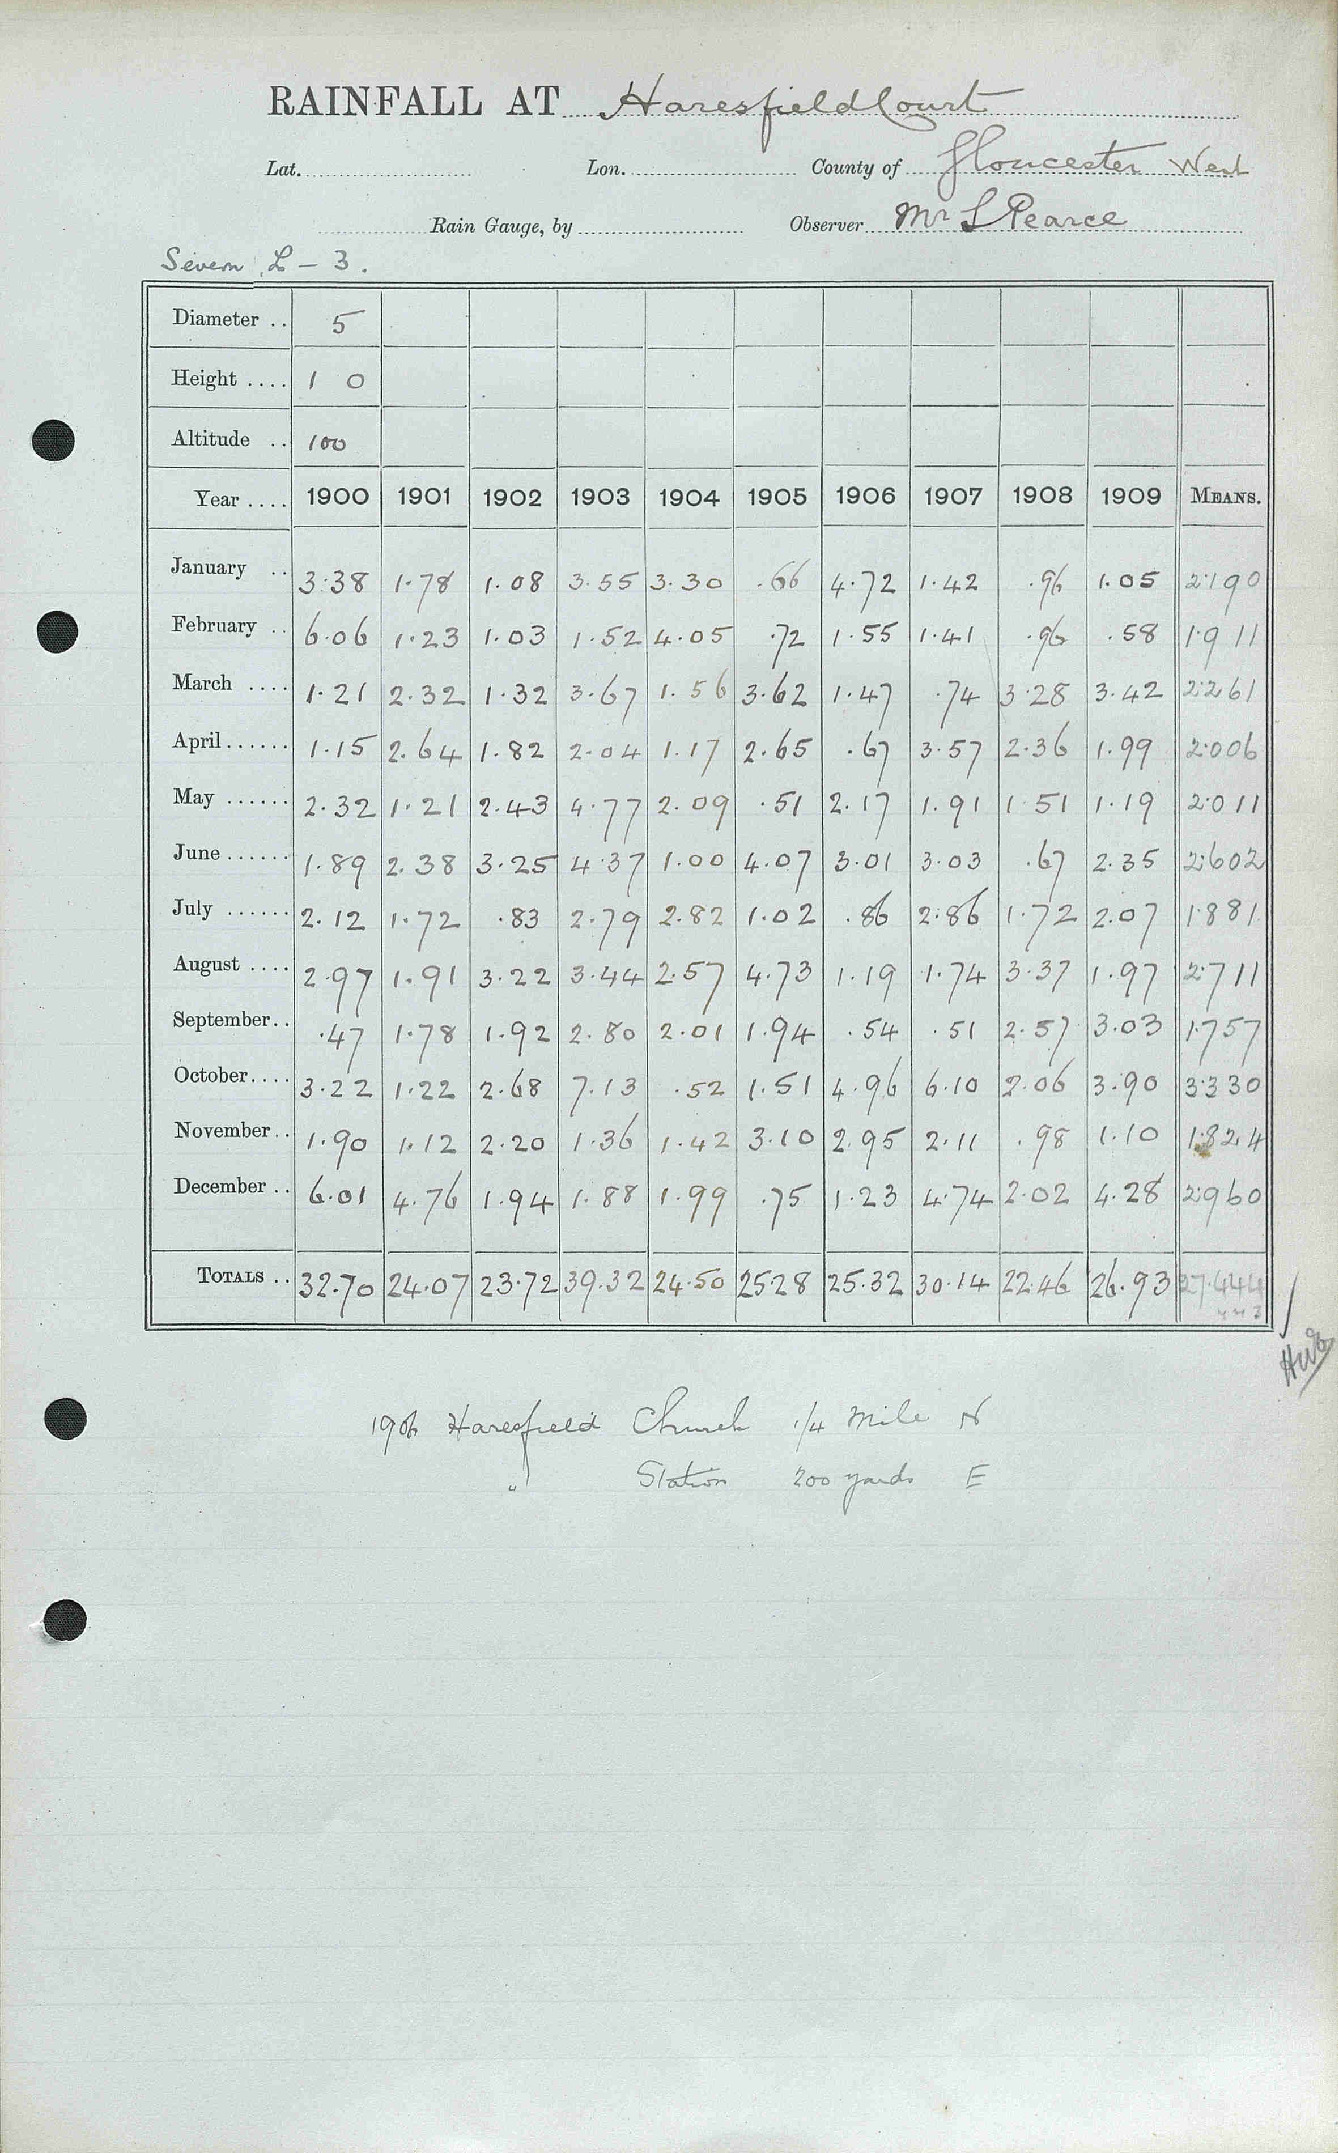 RAINFALL AT Haresfield Court
Lat. Lon. County of Gloucester West
Rain Gauge, by Observer Mr L Pearce
Severn L - 3.
Diameter .. 5
Height .... 1 0
Altitude .. 100
Year .... 1900 1901 1902 1903 1904 1905 1906 1907 1908 1909 MEANS.
January .. 3.38 1.78 1.08 3.55 3.30 .66 4.72 1.42 .96 1.05 2.190
February .. 6.06 1.23 1.03 1.52 4.05 .72 1.55 1.41 .96 .58 1.911
March .... 1.21 2.32 1.32 3.67 1.56 3.62 1.47 .74 3.28 3.42 2.261
April...... 1.15 2.64 1.82 2.04 1.17 2.65 .67 3.57 2.36 1.99 2.006
May ...... 2.32 1.21 2.43 4.77 2.09 .51 2.17 1.91 1.51 1.19 2.011
June...... 1.89 2.38 3.25 4.37 1.00 4.07 3.01 3.03 .67 2.35 2.602
July ...... 2.12 1.72 .83 2.79 2.82 1.02 .86 2.86 1.72 2.07 1.881
August .... 2.97 1.91 3.22 3.44 2.57 4.73 1.19 1.74 3.37 1.97 2.711
September.. .47 1.78 1.92 2.80 2.01 1.94 .54 .51 2.57 3.03 1.757
October.... 3.22 1.22 2.68 7.13 .52 1.51 4.96 6.10 2.06 3.90 3.330
November.. 1.90 1.12 2.20 1.36 1.42 3.10 2.95 2.11 .98 1.10 1.824
December .. 6.01 4.76 1.94 1.88 1.99 .75 1.23 4.74 2.02 4.28 2.960
TOTALS .. 32.70 24.07 23.72 39.32 24.50 25 28 25.32 30.14 22.46 26.93 27.444
443
1906 Haresfield Church 1/4 Mile N
" Station 200 yards E